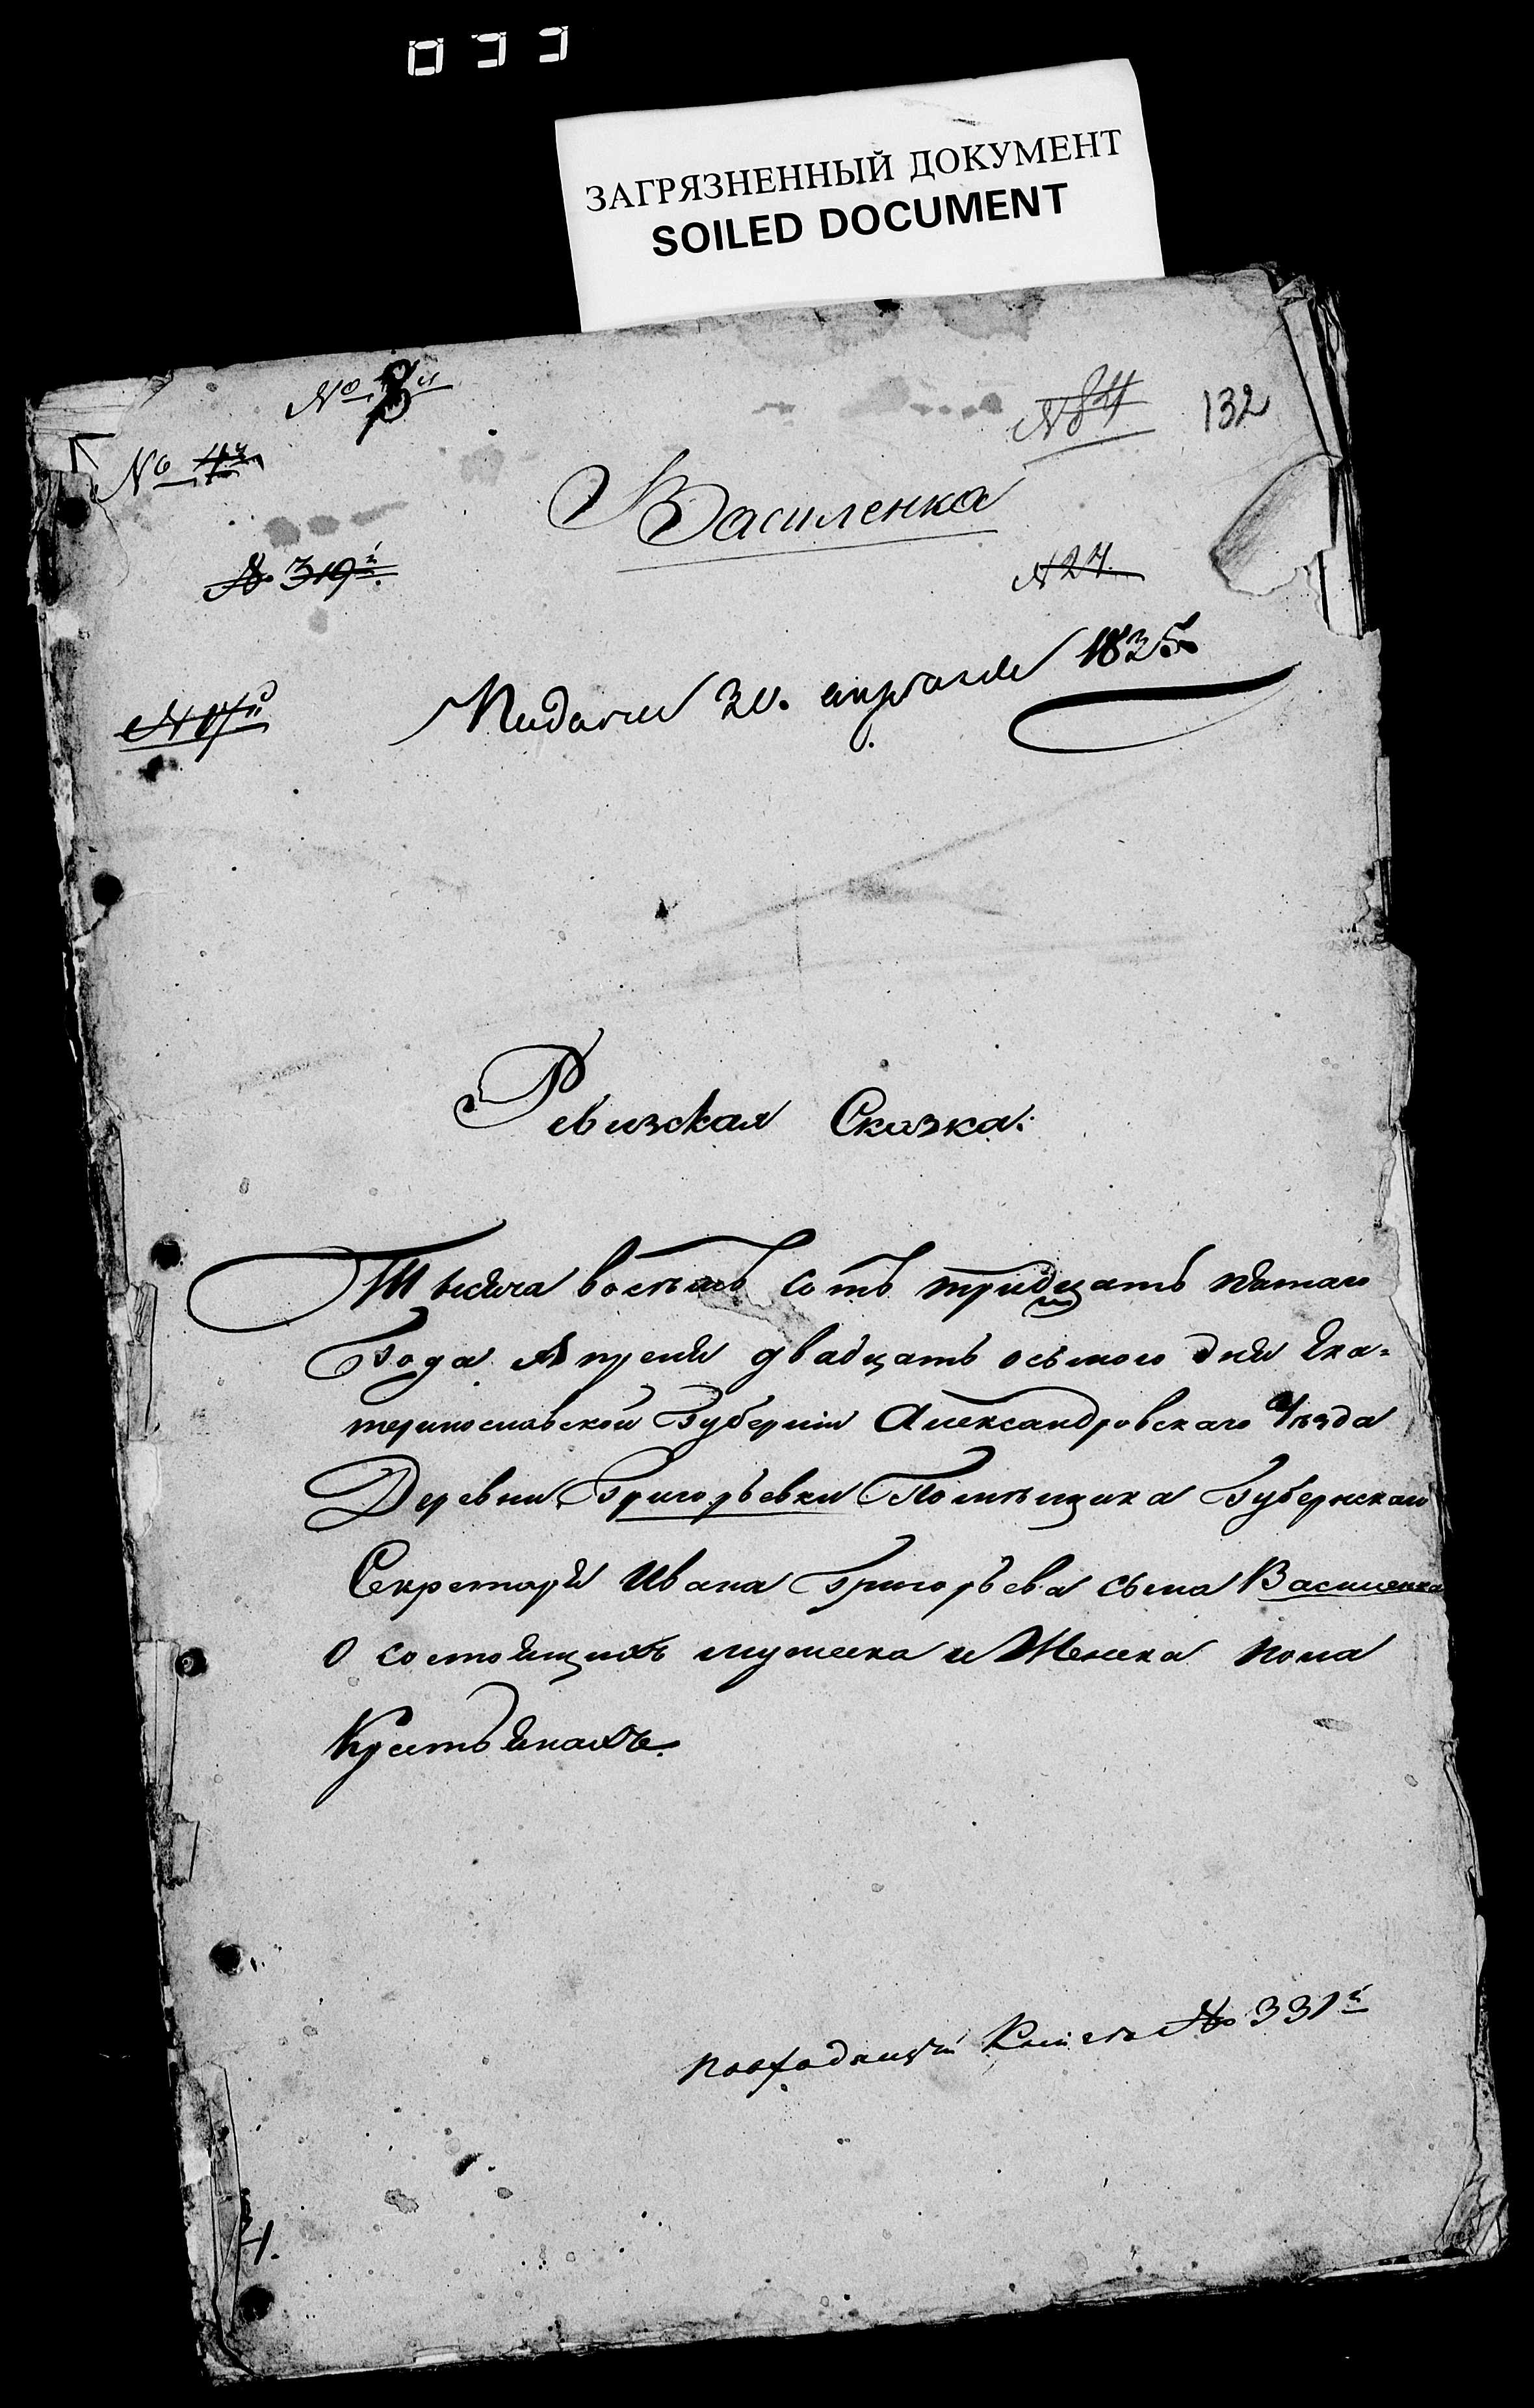 033
ЗАГРЯЗНЕННЫЙ ДОКУМЕНТ
SOILED DOCUMENT
№ 8й
№ 84
132
№
Василенка
№ 319й.
№ 24.
Подано 30. апреля 1835.
Ревизская Сказка.
Тысяча восемь сотъ тридцать пятаго
Года Апреля двадцать осьмого дня Ека-
теринославской Губерніи Александровскаго Уѣзда
Деревни Григорьевки Помѣщика Губернскаго
Секретаря Ивана Григорьева сына Василенка
О состоящихъ мужеска и Женска пола
Крестьянахъ.
№ 331й